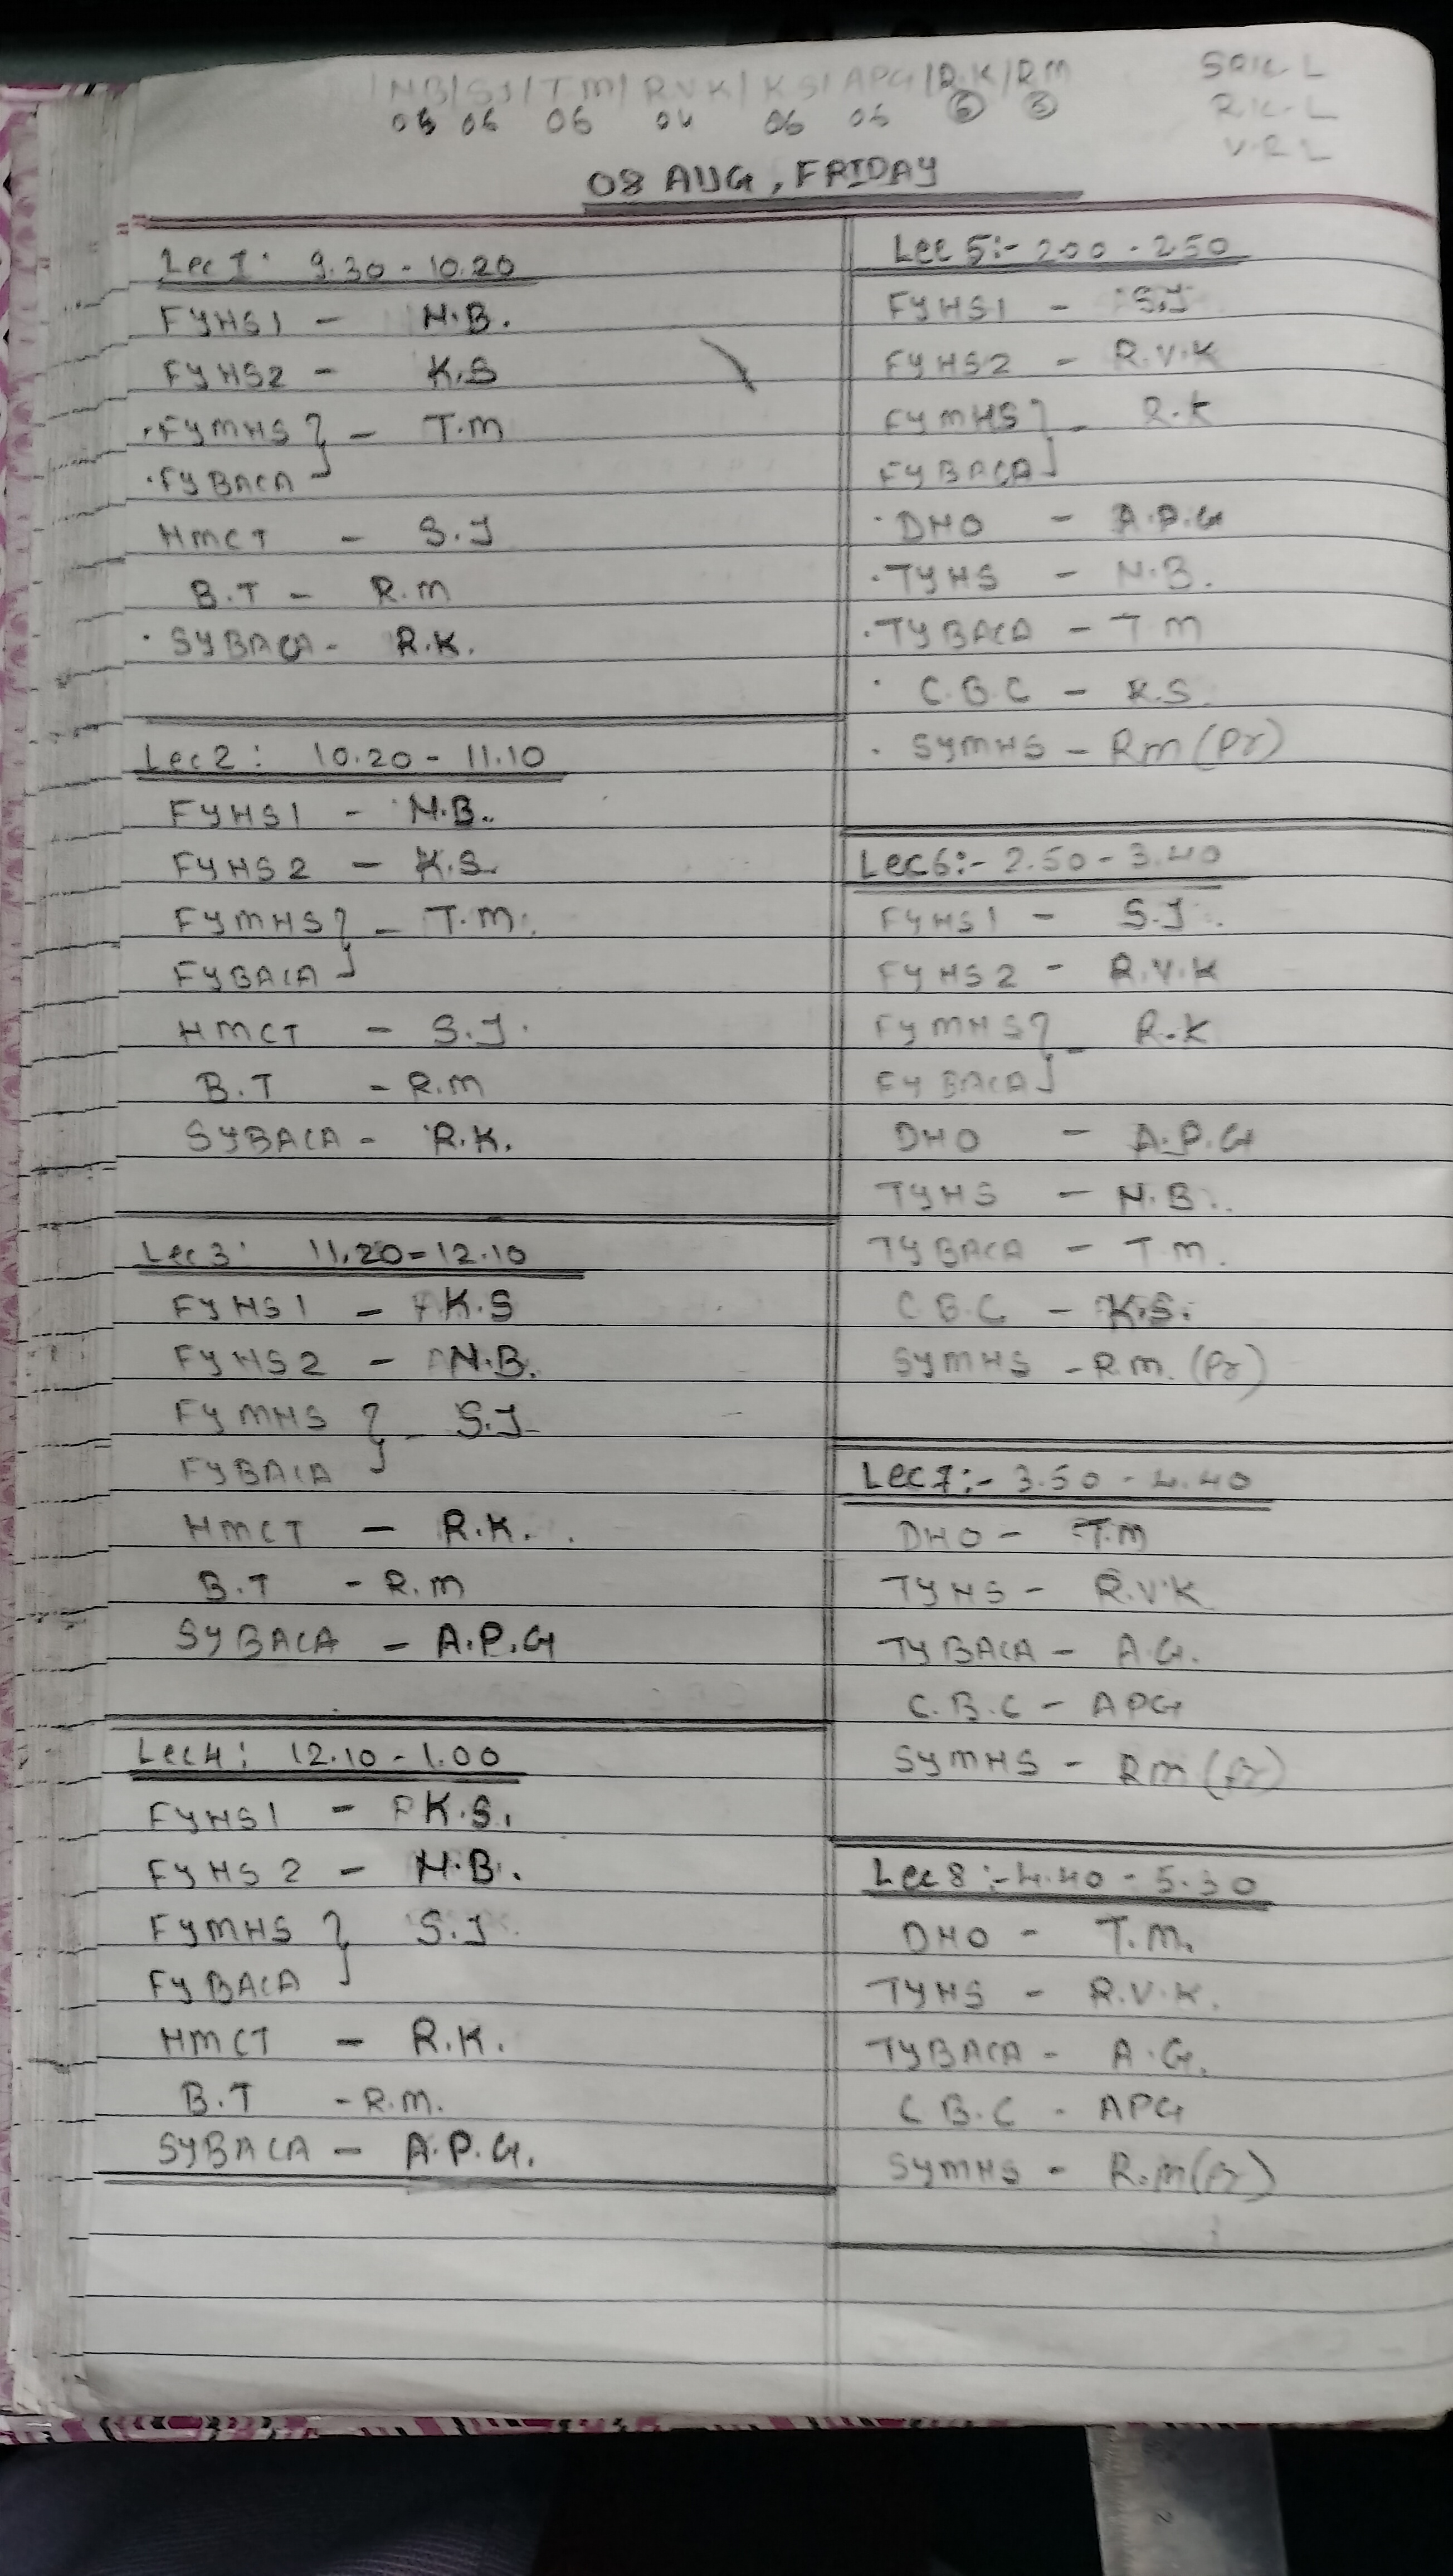 NB/SJ/TM/RVK/KS/APG/R.K/RM
06 06 06 04 06 06 6 5
SRK-L
RK-L
V.R L
08 AUG, FRIDAY
Lec 1: 9.30-10.20
FYHS1 - N.B.
FYHS2 - K.S
.FYMHS} - T.M
.FYBACA
HMCT - S.J
B.T - R.M
. SYBACA - R.K.
Lec2: 10.20-11.10
FYHS1 - N.B.
FYHS2 - K.S.
FYMHS} - T.M.
FYBACA
HMCT - S.J.
B.T - R.M
SYBACA - R.K.
Lec3: 11.20=12.10
FYHS1 - K.S
FYHS2 - N.B.
FYMHS} - S.J
FYBACA
HMCT - R.K.
B.T - R.M
SYBACA - A.P.G
Lec4: 12.10-1.00
FYHS1 - K.S.
FYHS2 - N.B.
FYMHS} S.J
FYBACA
HMCT - R.K.
B.T - R.M.
SYBACA - A.P.G.
Lec 5:- 200-250
FYHS1 - S.J
FYHS2 - R.V.K
FYMHS} - R.K
FYBACA
. DHO - A.P.G
.TYHS - N.B.
.TYBACA - TM
. C.B.C - K.S.
. SYMHS - RM (Pr)
Lec6:- 2.50-3.40
FYHS1 - S.J.
FYHS2 - R.V.K
FYMHS} - R.K
FYBACA
DHO - A.P.G
TYHS - N.B.
TYBACA - T.M.
C.B.C - K.S.
SYMHS - R.M. (Pr)
Lec7:- 3.50-4.40
DHO - T.M
TYHS - R.V.K
TYBACA - A.G.
C.B.C - APG
SYMHS - RM (Pr)
Lec8:- 4.40-5.30
DHO - T.M.
TYHS - R.V.K.
TYBACA - A.G.
C.B.C - APG
SYMHS - R.M(Pr)